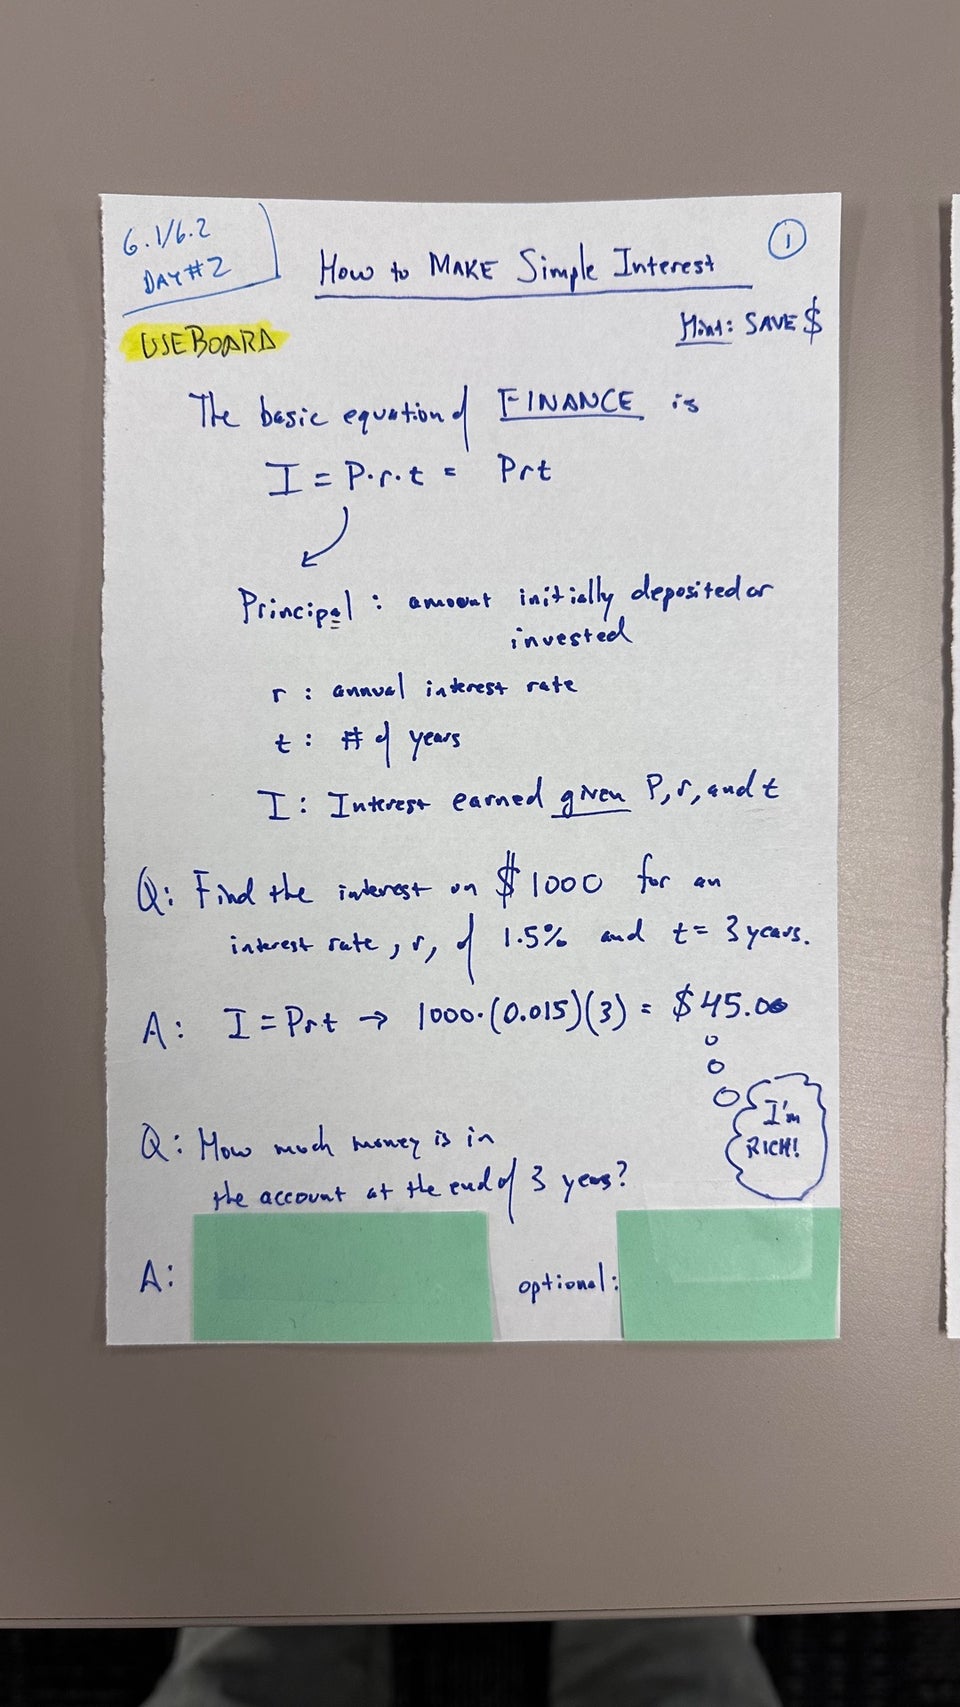 6.1/6.2
DAY #2
①
How to MAKE Simple Interest
Hint: SAVE $
USE BOARD
The basic equation of FINANCE is
I = P·r·t = Prt
Principal : amount initially deposited or
invested
r : annual interest rate
t : # of years
I : Interest earned given P, r, and t
Q: Find the interest on $1000 for an
interest rate, r, of 1.5% and t = 3 years.
A: I = Prt → 1000·(0.015)(3) = $45.00
I'm
RICH!
Q: How much money is in
the account at the end of 3 years?
A:
optional: